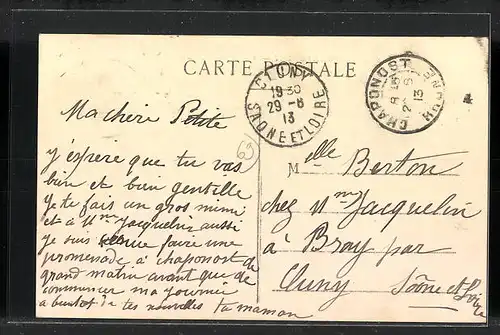 CARTE POSTALE
CLUNY
19 30
29-6
13
SAONE ET LOIRE
CHAPONOST
RHONE
13
69
Ma chere Petite
j'espere que tu vas
bien et bien gentille
Je te fais un gros mimi
et à Mme Jacquelin aussi
Je suis venue faire une
promenade à chaponost de
grand matin avant que de
commencer ma journée
a bientot de tes nouvelles ta maman
Melle Berton
chez Mme Jacquelin
à Bray par
Cluny Saône et Loire